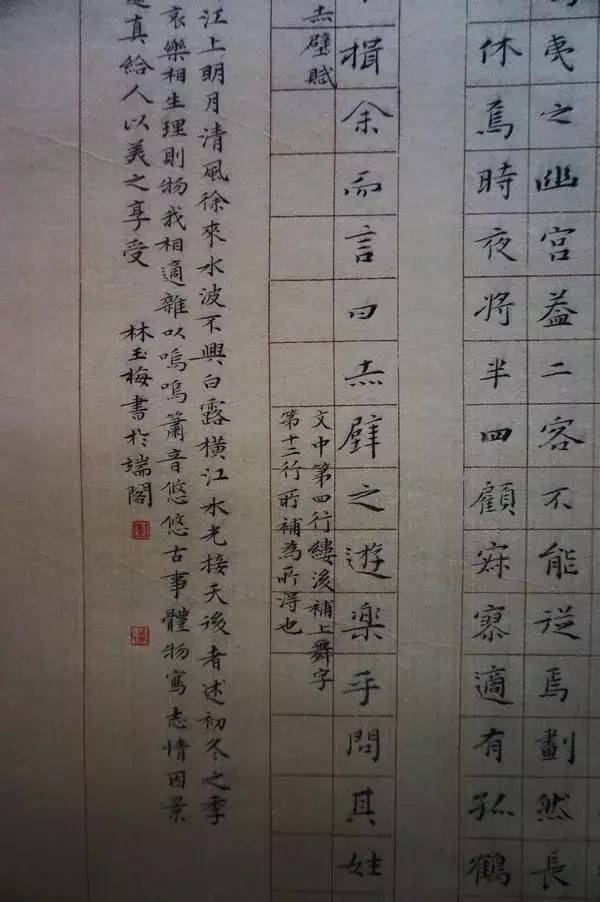 夷之幽宮盖二客不能從焉劃然長
休焉時夜將半四顧寂寥適有孤鶴
揖余而言曰赤壁之遊楽乎問其姓
赤壁賦
文中第四行縷後補上舞字
第十二行所補為所得也
江上明月清風徐來水波不興白露橫江水光接天後者述初冬之季
哀樂相生理則物我相適雜以嗚嗚簫音悠悠古事體物寫志情因景
真給人以美之享受 林玉梅書於端閣